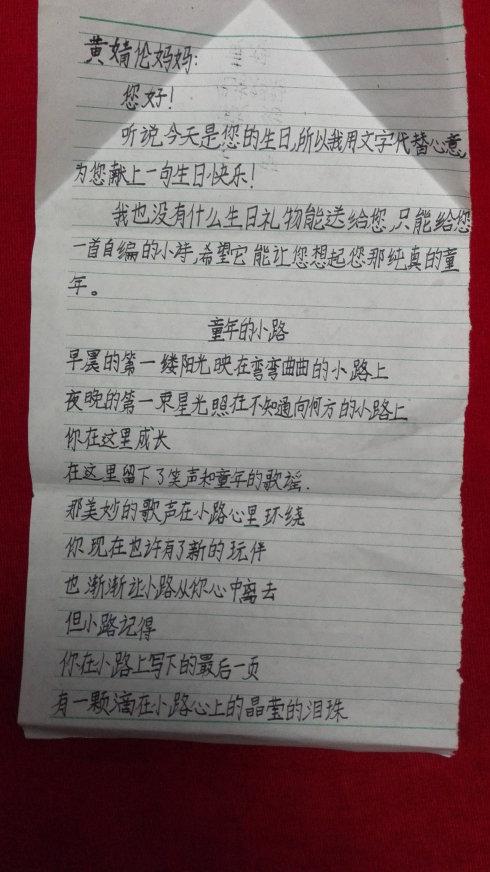 黄婧伦妈妈:
您好!
听说今天是您的生日,所以我用文字代替心意,
为您献上一句生日快乐!
我也没有什么生日礼物能送给您,只能给您
一首自编的小诗,希望它能让您想起您那纯真的童
年。
童年的小路
早晨的第一缕阳光映在弯弯曲曲的小路上
夜晚的第一束星光照在不知通向何方的小路上
你在这里成长
在这里留下了笑声和童年的歌谣.
那美妙的歌声在小路心里环绕
你现在也许有了新的玩伴
也渐渐让小路从你心中离去
但小路记得
你在小路上写下的最后一页
有一颗滴在小路心上的晶莹的泪珠